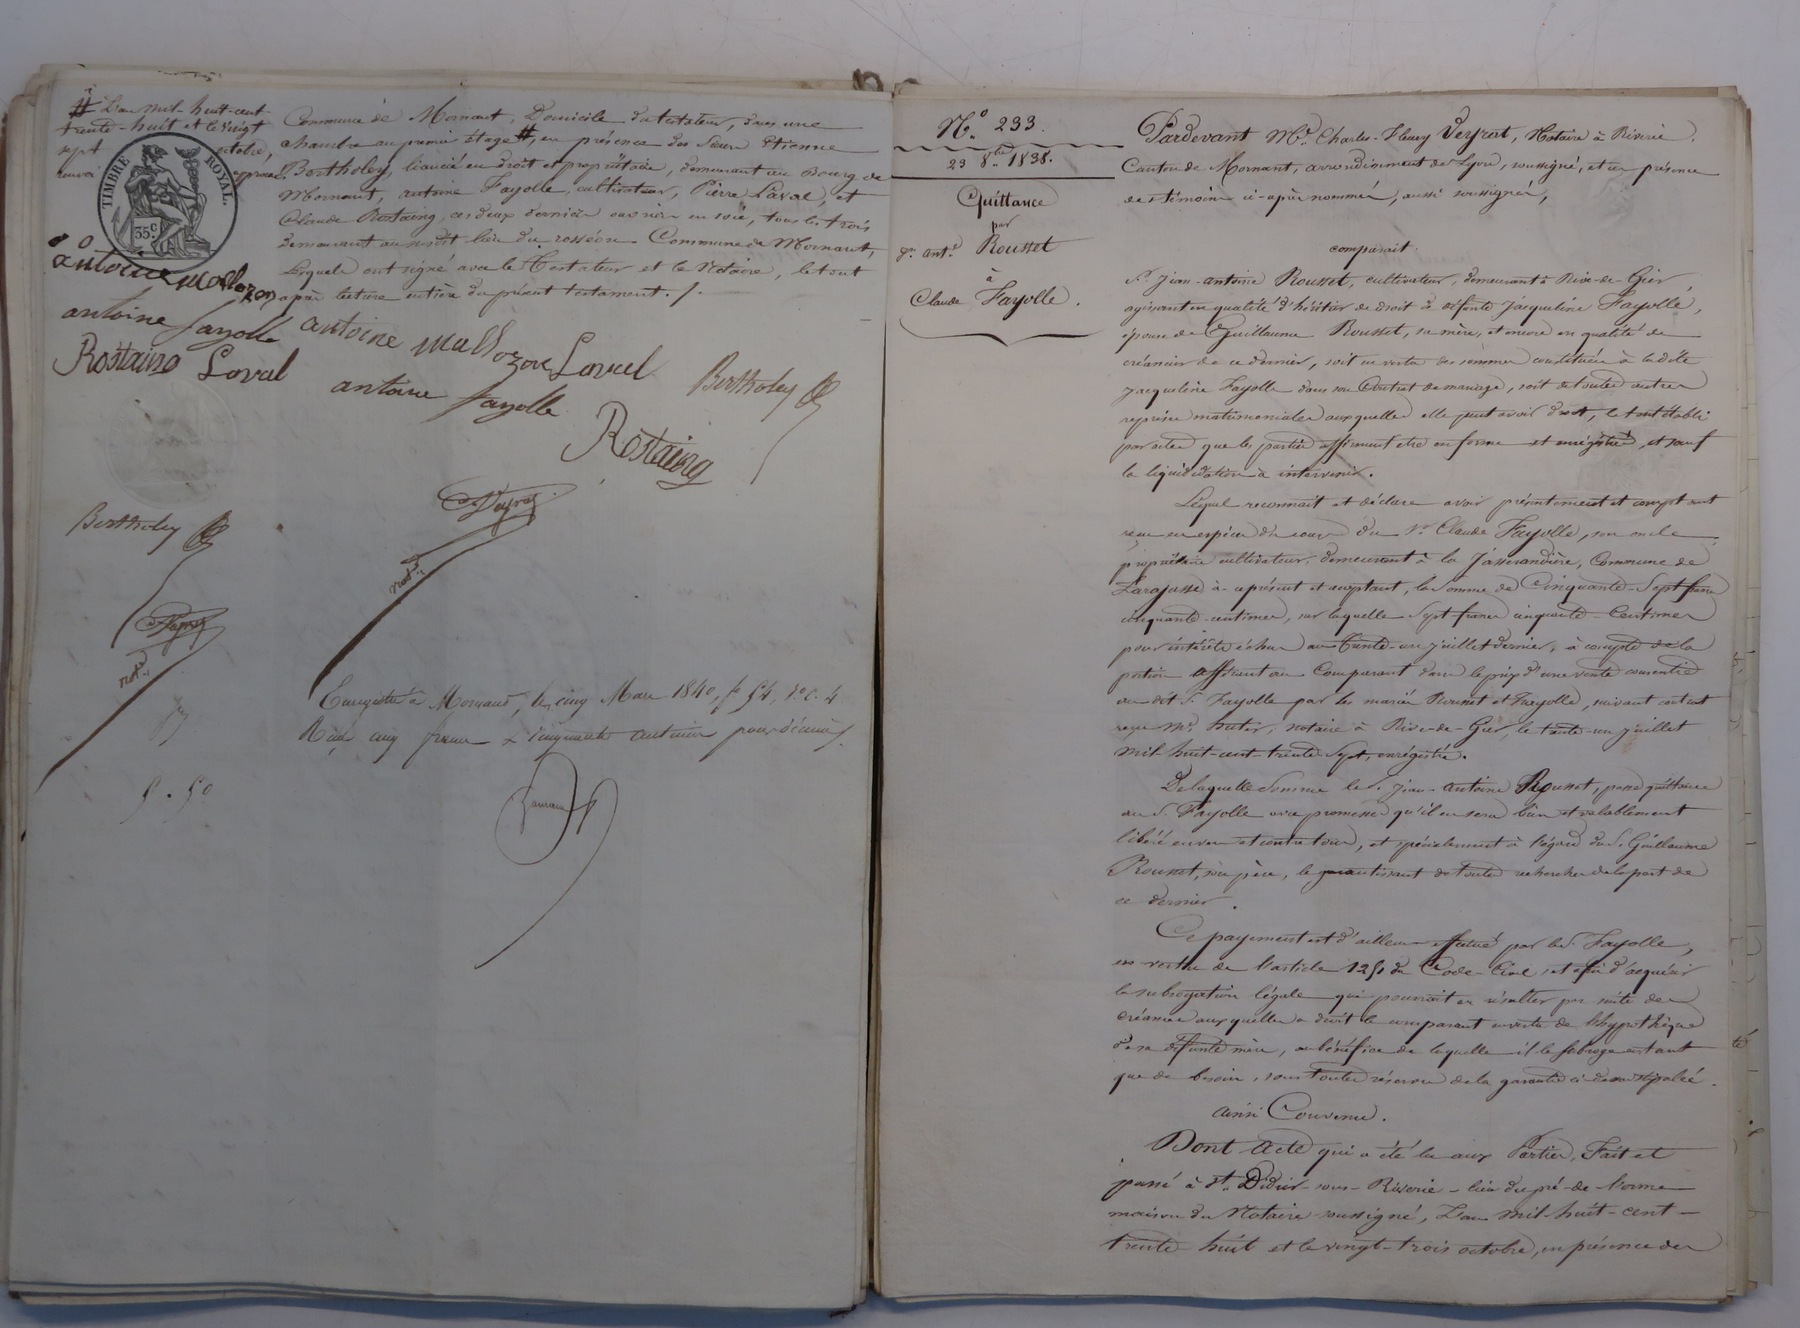 # L'an mil-huit-cent-
trente-huit et le vingt
sept octobre,
renvoi approuvé
TIMBRE ROYAL.
35 c
Commune de Mornant, Domicile du testateur, dans une
chambre au premier étage #, en présence des Sieurs Etienne
Bertholey, licencié en droit et propriétaire, demeurant au Bourg de
Mornant, antoine Fayolle, cultivateur, Pierre Laval, et
Claude Rostaing, ces deux derniers ouvriers en soie, tous les trois
demeurant au susdit lieu du rosséon Commune de Mornant,
lesquels ont signé avec le Testateur et le Notaire, le tout
après lecture entière du présent testament. /.
antoine
antoine fayolle antoine
Rostaing Loval Loval
antoine fayolle Bertholey
Rostaing
Bertholey
not.re
not.re
Enregistré à Mornant, le cinq Mars 1840, f.o 54, v.o c. 4
Reçu cinq francs & cinquante centimes pour décime /.
5 . 50
N.o 233.
23 8.bre 1838.
Quittance
par
J.n Ant.e Rousset
à
Claude Fayolle.
Pardevant M.e Charles-Fleury Veyrat, Notaire à Riverie,
Canton de Mornant, arrondissement de Lyon, soussigné, et en présence
des témoins ci-après nommés, aussi soussignés,
comparait
S.r Jean-antoine Rousset, cultivateur, demeurant à Rive-de-Gier,
agissant en qualité d'héritier de droit de défunte Jacqueline Fayolle,
épouse de Guillaume Rousset, sa mère, et encore en qualité de
créancier de ce dernier, soit en vertu des sommes constituées à ladite
Jacqueline Fayolle dans son Contrat de mariage, soit de toutes autres
reprises matrimoniales auxquelles elle peut avoir droit, le tout établi
par actes que les parties affirment être en forme et enrégistrés, et sauf
la liquidation à intervenir.
Lequel reconnait et déclare avoir présentement et comptant
reçu en espèces de cours du S.r Claude Fayolle, son oncle,
propriétaire cultivateur, demeurant à la Jasserandière, Commune de
Larajasse à ce présent et acceptant, la somme de Cinquante-Sept francs
cinquante-centimes, sur laquelle Sept francs cinquante-Centimes
pour intérêts échus au trente-un juillet dernier, à compte de la
portion afférant au Comparant dans le prix d'une vente consentie
au dit S.r Fayolle par les mariés Rousset et Fayolle, suivant contrat
reçu M.e hutier, notaire à Rive-de-Gier, le trente-un juillet
mil huit-cent-trente-Sept, enrégistré.
De laquelle Somme le S.r Jean-antoine Rousset, passe quittance
au S.r Fayolle avec promesse qu'il en sera bien et valablement
libéré envers et contre tous, et spécialement à l'égard du S.r Guillaume
Rousset, son père, le garantissant de toutes recherches de la part de
ce dernier.
Ce payement est d'ailleurs effectué par le S.r Fayolle,
en vertu de l'article 1251 du Code-Civil, et afin d'acquérir
la subrogation légale qui pourrait en résulter par suite des
créances auxquelles a droit le comparant en vertu de l'hypothèque
de sa défunte mère, au bénéfice de laquelle il le subroge autant
que de besoin, sous toutes réserves de la garantie ci-dessus stipulée.
ainsi Convenu.
Dont Acte qui a été lu aux Parties, Fait et
passé à S.t Didier-sous-Riverie-lieu du pré-de-l'orme
maison du Notaire soussigné, L'an mil huit-cent-
trente-huit et le vingt-trois octobre, en présence des